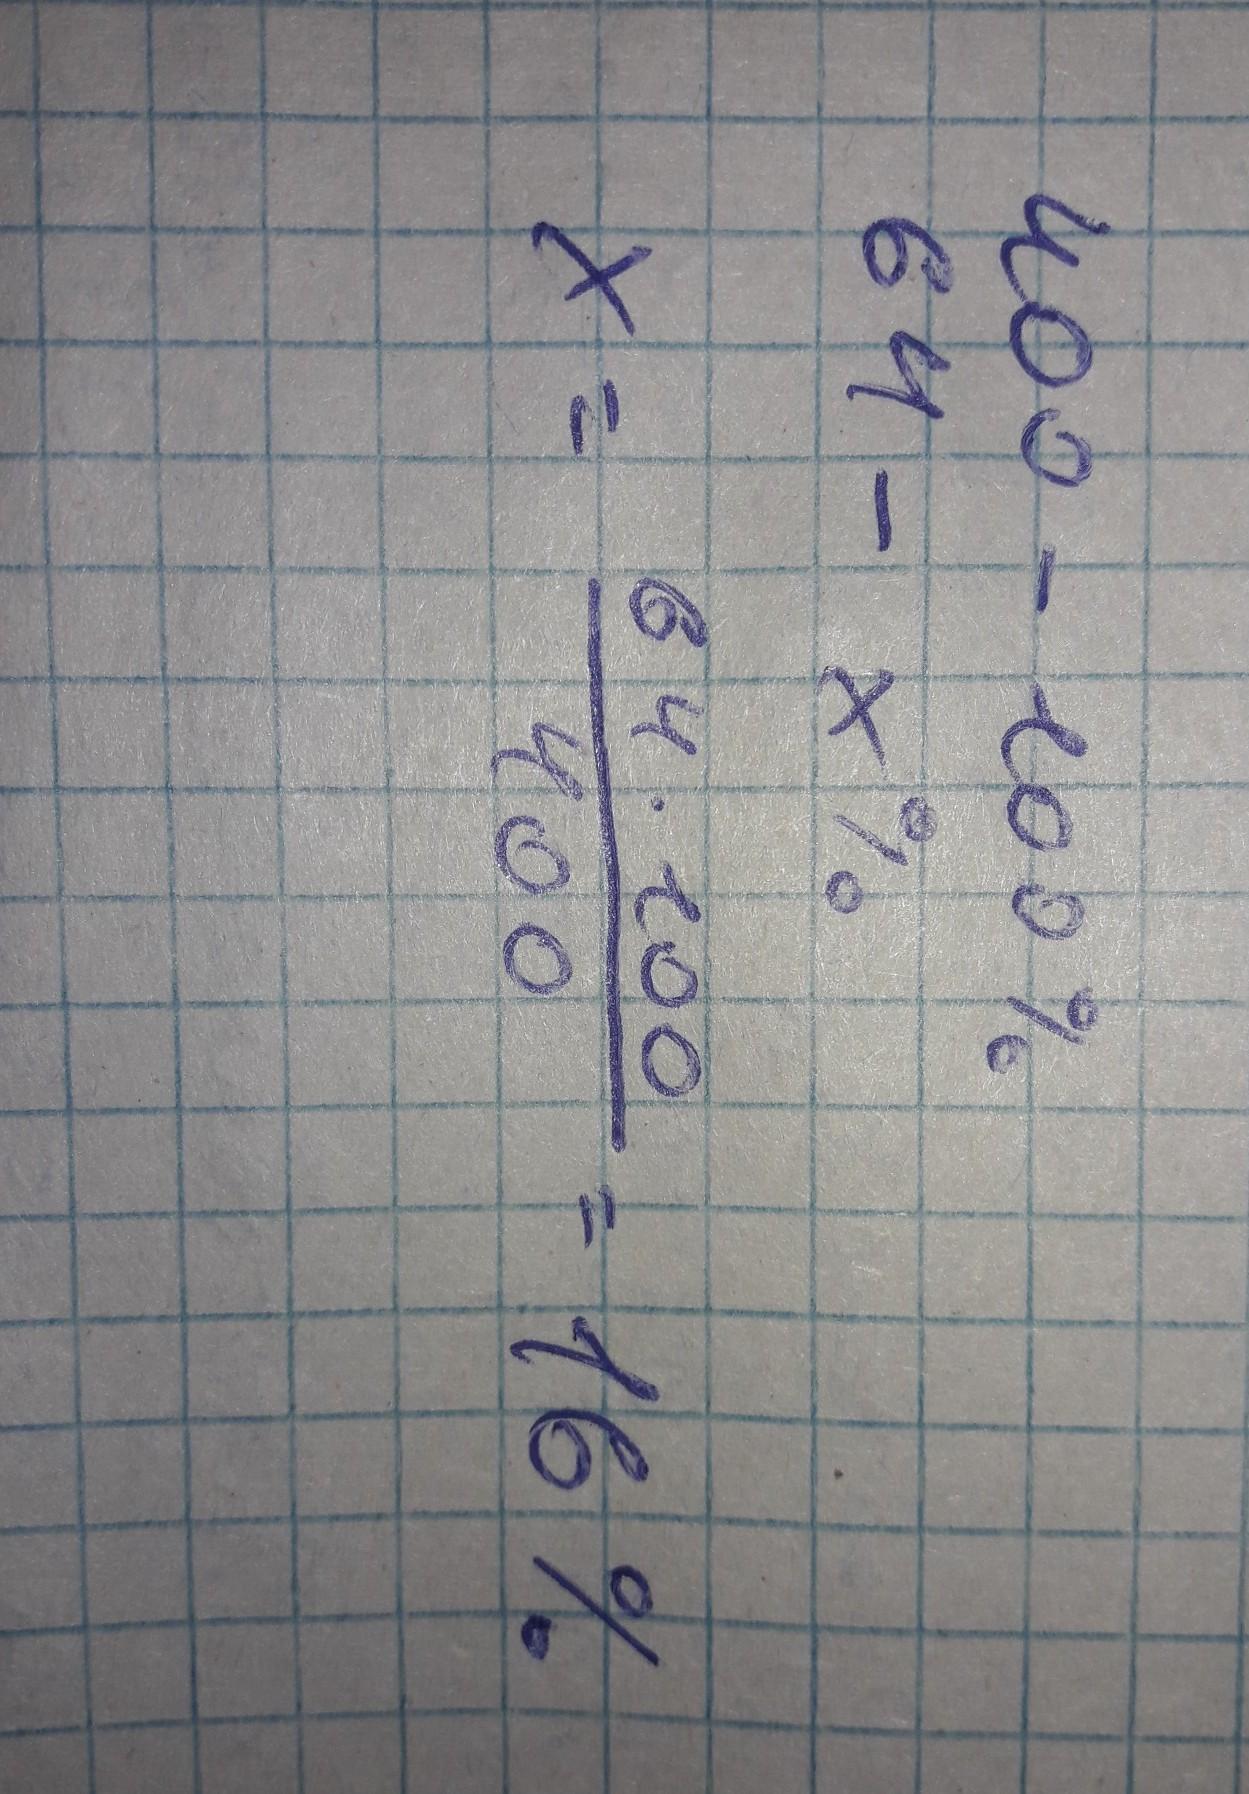 400 - 100%
64 - x%
x = 64 · 100 / 400 = 16%